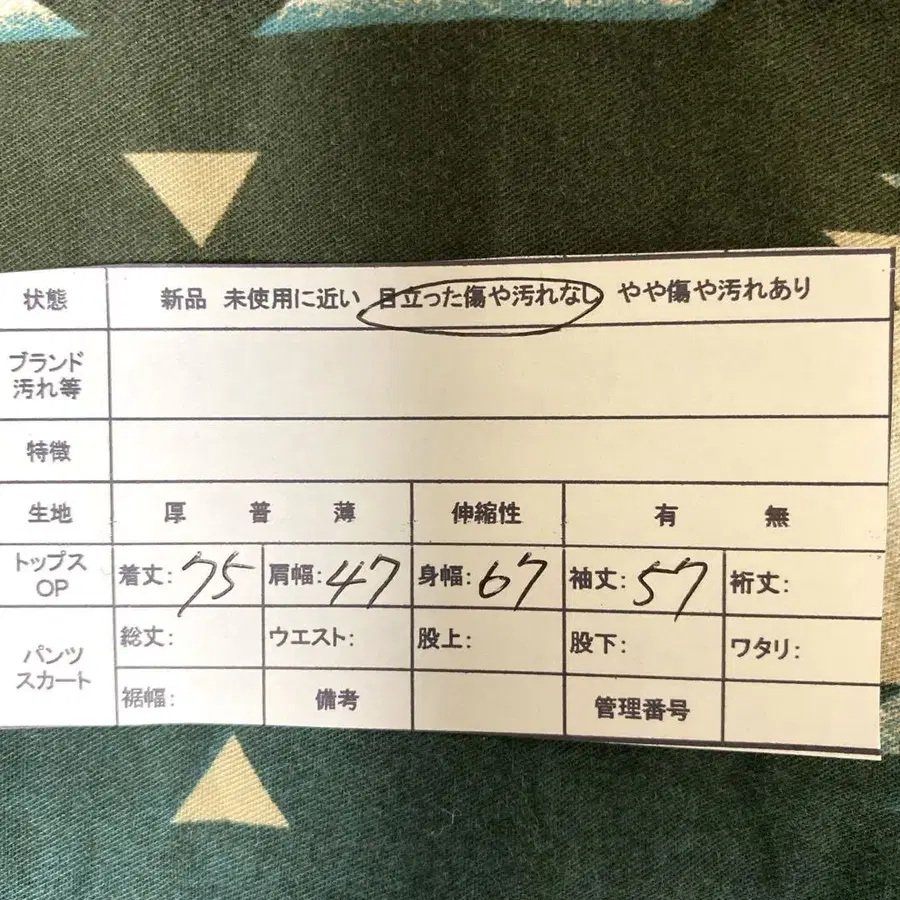 状態 新品 未使用に近い 目立った傷や汚れなし やや傷や汚れあり
ブランド
汚れ等
特徴
生地 厚 普 薄 伸縮性 有 無
トップス
OP
着丈:75 肩幅:47 身幅:67 袖丈:57 裄丈:
パンツ
スカート
総丈: ウエスト: 股上: 股下: ワタリ:
裾幅: 備考 管理番号